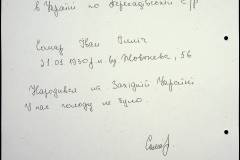 в Україні по Переяслівській с/р
Сомар Іван Ілліч
21.01.1930 р н вул Жовтнева, 56
Народився на Західній Україні
У нас голоду не було.